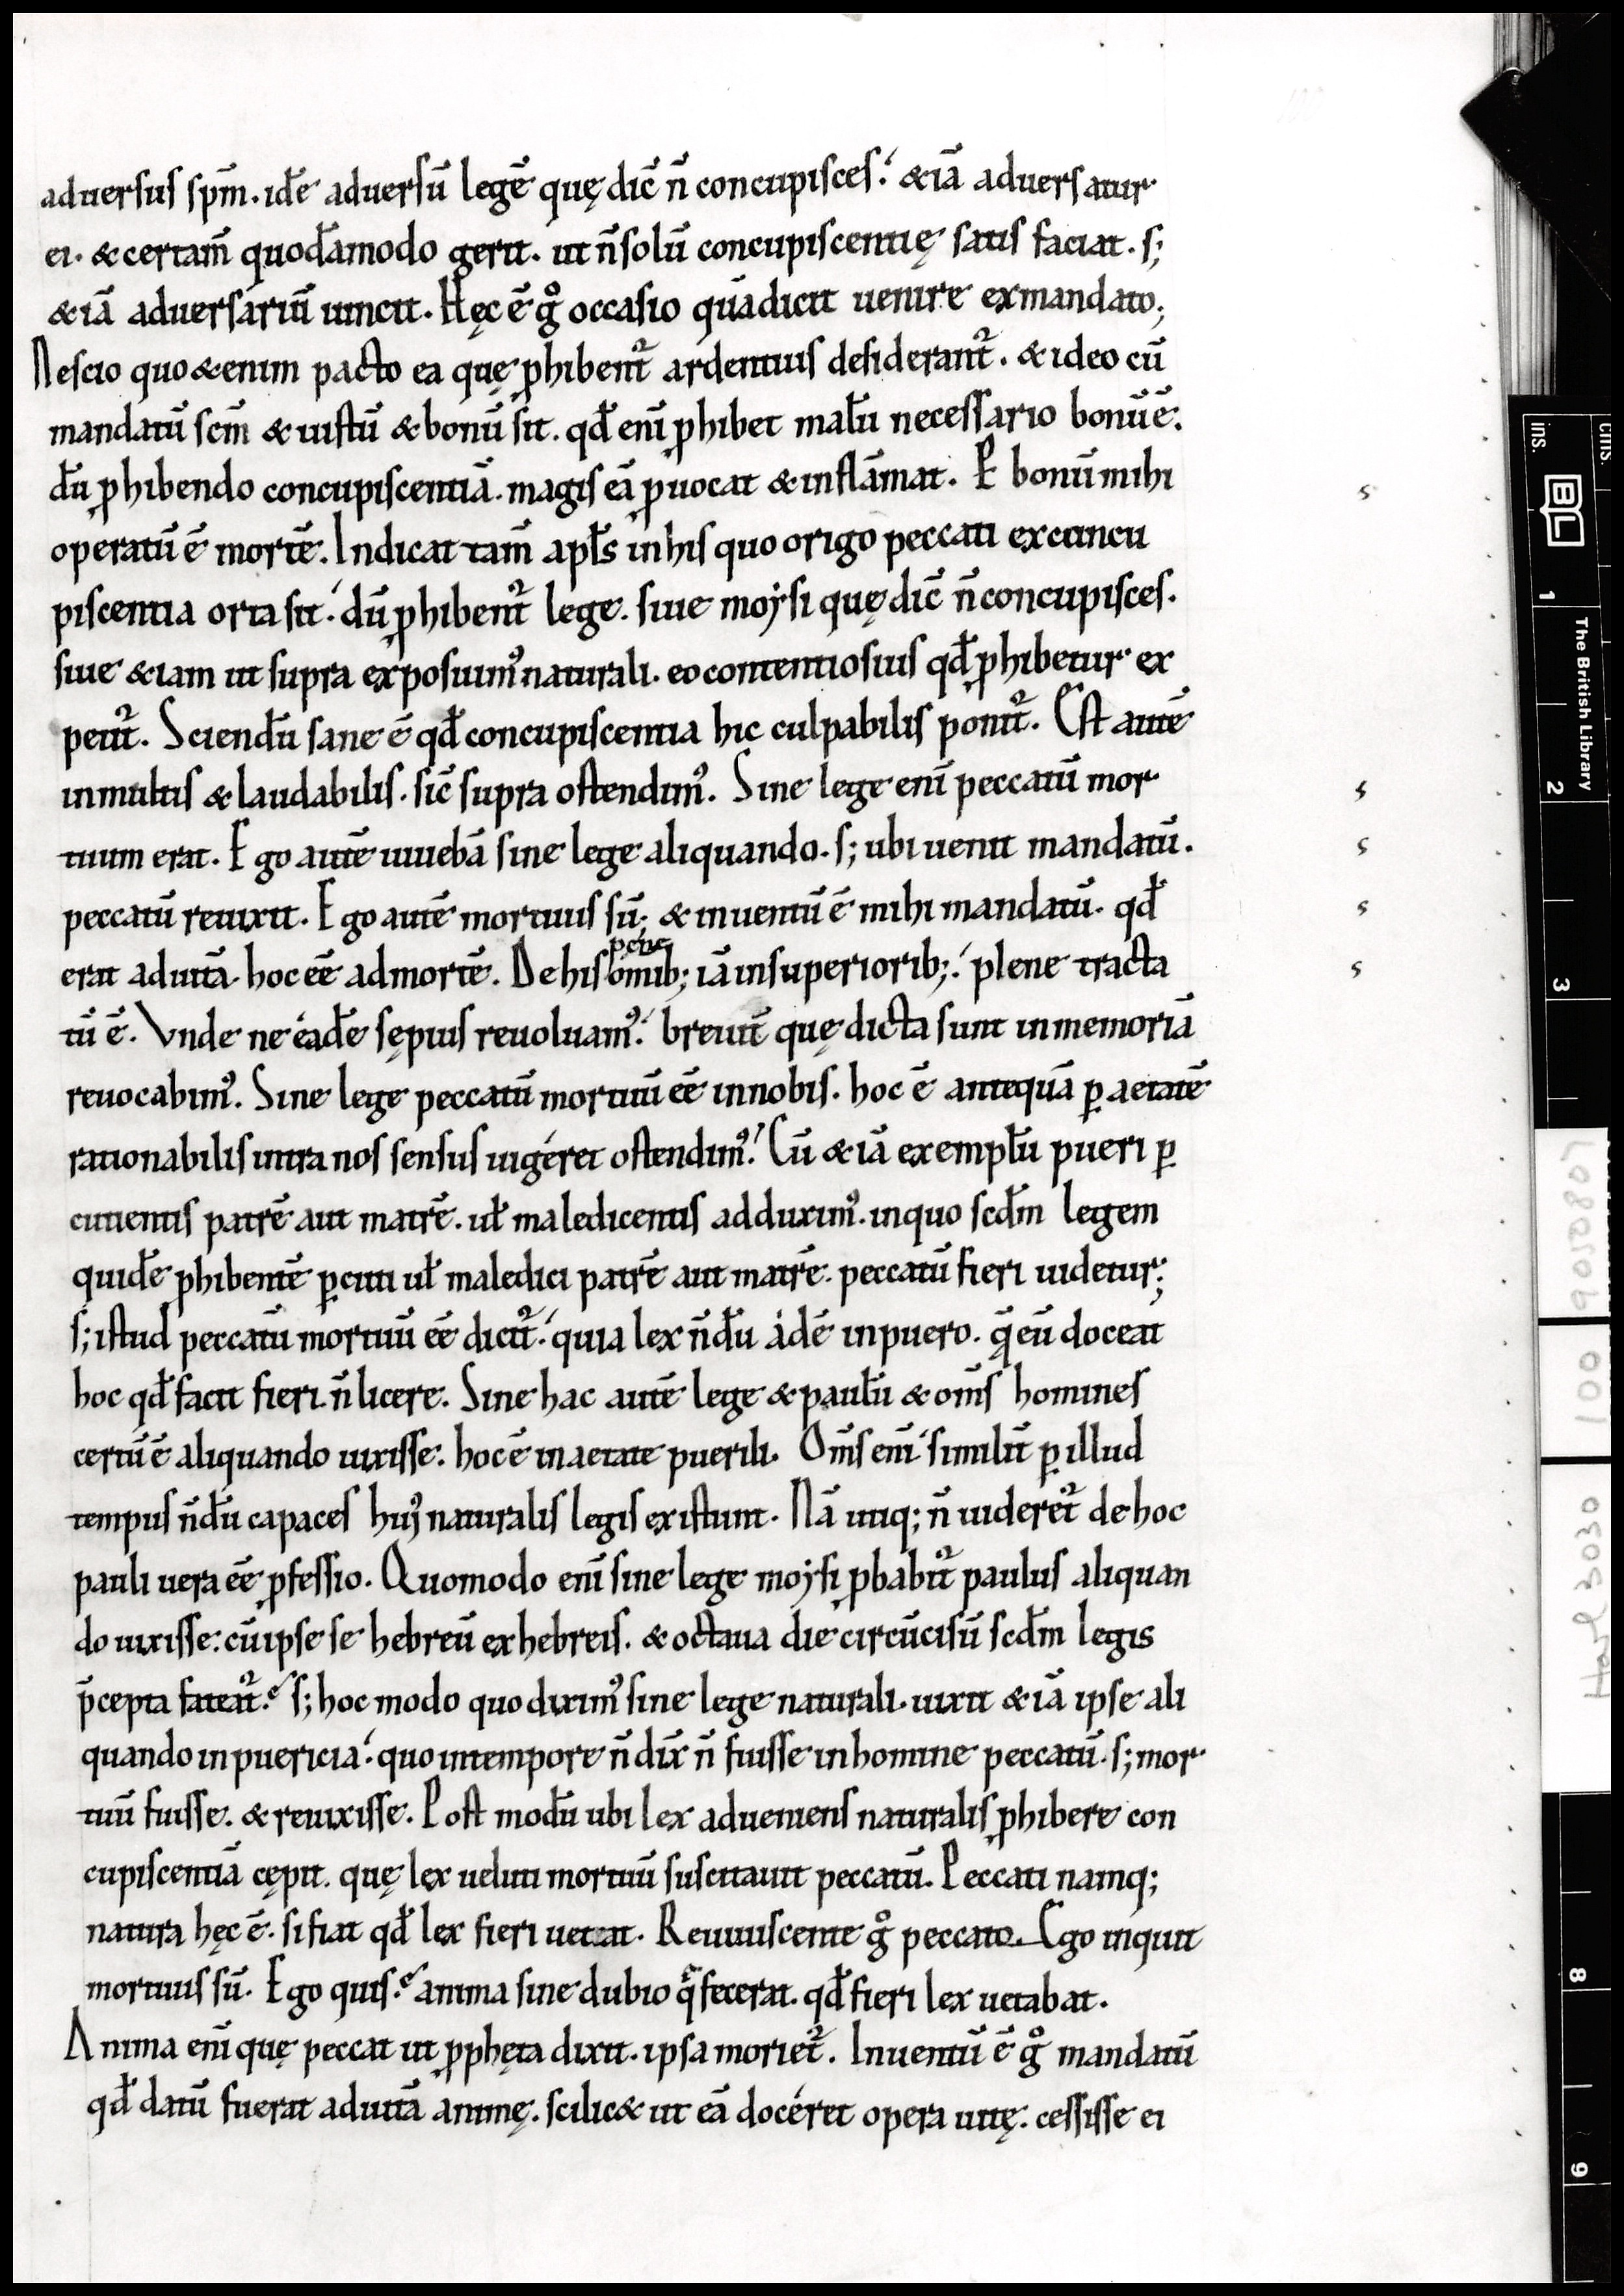 aduersus sp̄m. idē aduersū legē quę dic̄ n̄ concupisces. &iā aduersatur
ei. & certam̄ quodāmodo gerit. ut n̄ solū concupiscentię satis faciat. s;
&iā aduersariū uincit. Hęc ē g̊ occasio quā dicit uenire ex mandato;
Nescio quo &enim pacto ea quę ꝓhibent᷑ ardentius desiderant᷑. & ideo cū
mandatū sc̄m & iustū & bonū sit. qđ enī ꝓhibet malū necessario bonū ē.
dū ꝓhibendo concupiscentiā. magis eā ꝓuocat & inflāmat. E bonū mihi
operatū ē mortē. Indicat tam̄ apłs in his quo origo peccati ex cuncu
piscentia orta sit. dū ꝓhibent᷑ lege. siue moẏsi quę dic̄ n̄ concupisces.
siue &iam ut supra exposuimꝰ naturali. eo contentiosius qđ ꝓhibetur ex
petit᷑. Sciendū sane ē qđ concupiscentia hic culpabilis ponit᷑. Est autē
in multis & laudabilis. sic̄ supra ostendimꝰ. Sine lege enī peccatū mor
tuum erat. Ego autē uiuebā sine lege aliquando. s; ubi uenit mandatū.
peccatū reuixit. Ego autē mortuus sū; & inuentū ē mihi mandatū. qđ
erat ad uitā. hoc eē ad mortē. De his pene om̄ib; iā in superiorib;. plene tracta
tū ē. Vnde ne eadē sępius reuoluamꝰ. breuit̄ quę dicta sunt in memoriā
reuocabimꝰ. Sine lege peccatū mortuū eē in nobis. hoc ē antequā ꝑ aetatē
rationabilis intra nos sensus uigéret ostendimꝰ. Cū &iā exemplū pueri ꝑ
cutientis patrē aut matrē. uł maledicentis adduximꝰ. in quo scd̄m legem
quidē ꝓhibentē ꝑcuti uł maledici patrē aut matrē. peccatū fieri uidetur;
s; istud peccatū mortuū eē dicit᷑. quia lex n̄dū adē in puero. q̄ eū doceat
hoc qđ facit fieri n̄ licere. Sine hac autē lege & paulū & om̄s homines
certū ē aliquando uixisse. hoc ē in aetate puerili. Om̄s enī similit̄ ꝑ illud
tempus n̄dū capaces huiꝰ naturalis legis existunt. Nā utiq; n̄ uideret᷑ de hoc
pauli uera eē ꝓfessio. Quomodo enī sine lege moẏsi ꝓbabit᷑ paulus aliquan
do uixisse. cū ipse se hebreū ex hebreis. & octaua die circūcisū scd̄m legis
p̄cepta fateat᷑. s; hoc modo quo diximꝰ sine lege naturali. uixit &iā ipse ali
quando in puericia. quo in tempore n̄ dix̄ n̄ fuisse in homine peccatū. s; mor
tuū fuisse. & reuixisse. Post modū ubi lex adueniens naturalis ꝓhibere con
cupiscentiā cępit. quę lex ueluti mortuū suscitauit peccatū. Peccati namq;
natura hęc ē. si fiat qđ lex fieri uetat. Reuiuiscente g̊ peccato. Ego inquit
mortuus sū. Ego quis. anima sine dubio q̄ fecerat. qđ fieri lex uetabat.
Anima enī quę peccat ut ꝓphęta dixit. ipsa moriet᷑. Inuentū ē g̊ mandatū
qđ datū fuerat ad uitā animę. scilic& ut eā docéret opera uitę. cessisse ei
s
s
s
s
s
cms.
ins.
BL
The British Library
1
2
3
8
9
9050807
100
Harl 3030